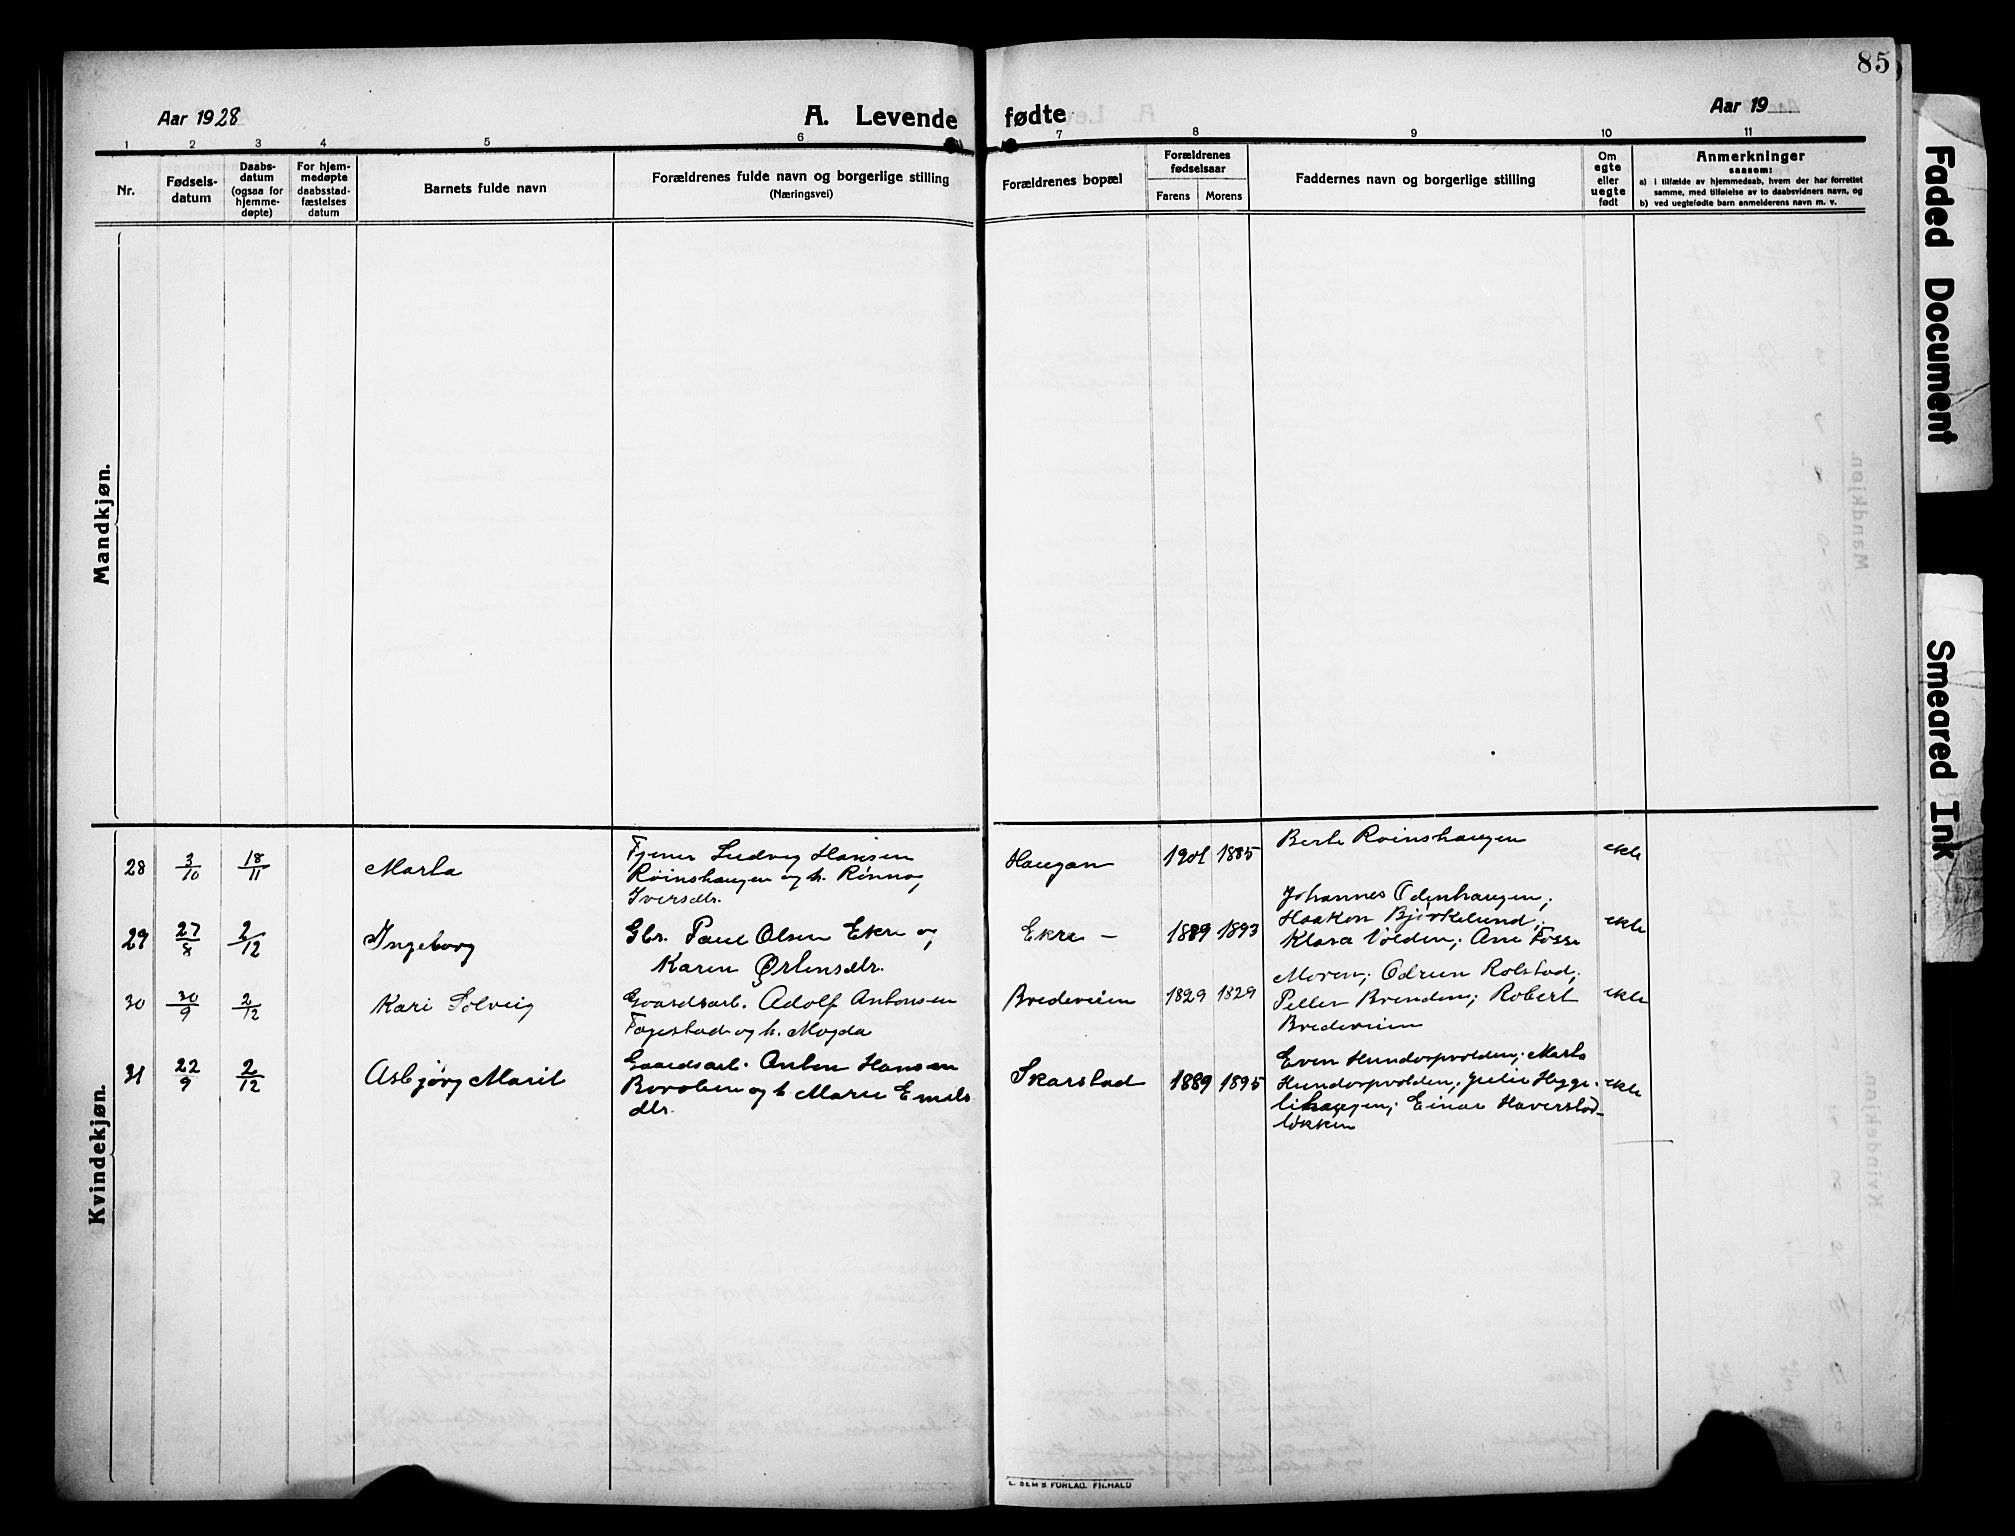 85
Aar 1928
A. Levende fødte
Aar 19
1 2 3 4 5 6 7 8 9 10 11
Nr.
Fødsels-
datum
Daabs-
datum
(ogsaa for
hjemme-
døpte)
For hjem-
medøpte
daabsstad-
fæstelses
datum
Barnets fulde navn
Forældrenes fulde navn og borgerlige stilling
(Næringsvei)
Forældrenes bopæl
Forældrenes
fødselsaar
Farens Morens
Faddernes navn og borgerlige stilling
Om
egte
eller
uegte
født
Anmerkninger
saasom:
a) i tilfælde av hjemmedaab, hvem der har forrettet
samme, med tilføielse av to daabsvidners navn, og
b) ved uegtefødte barn anmelderens navn m. v.
Mandkjøn.
Kvindekjøn.
28 3/10 18/11 Marta
Tjener Ludvig Hansen
Roinshaugen og h. Rønnog
Iversdtr.
Haugan 1901 1885
Berte Roinshaugen
ekte
29 27/8 2/12 Ingeborg
Gbr. Paul Olsen Ekre og
Karen Ørtensdtr.
Ekre – 1889 1893
Johannes Odenhaugen;
Haakon Bjørkelund;
Klara Volden; Ane Fosse
ekte
30 30/9 2/12 Kari Solveig
Gaardsarb. Adolf Antonsen
Fagestad og h. Magda
Bredeveien 1829 1829
Moren; Odrun Rolstad;
Petter Brenden; Robert
Bredeveien
ekte
31 22/9 2/12 Asbjørg Marit
Gaardsarb. Anton Hansen
og h Marie Emils
dtr.
Skarstad 1889 1895
Even Hundorpvolden; Marta
Hundorpvolden; Julie Hygge-
lihaugen; Einar Haverstad-
løkken
ekte
L. SEM'S FORLAG. FR.HALD
Faded Document
Smeared Ink